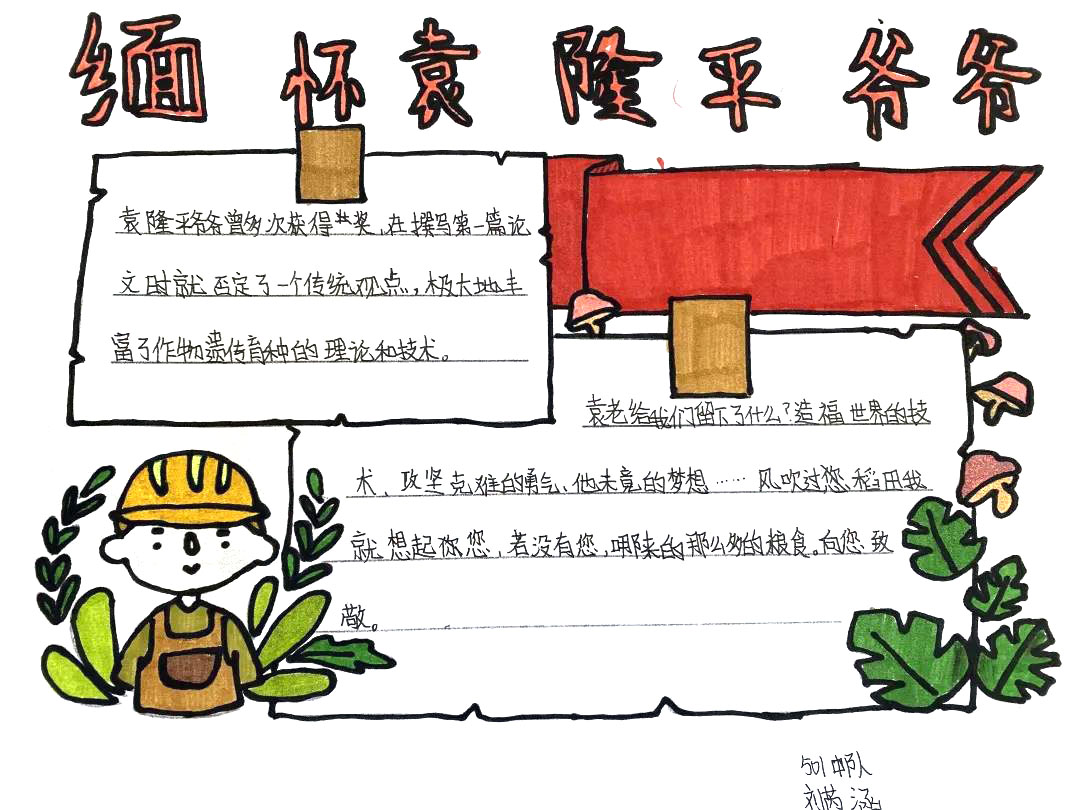 缅怀袁隆平爷爷
袁隆平爷爷曾多次获得大奖,在撰写第一篇论
文时就否定了一个传统观点,极大地丰
富了作物遗传育种的理论和技术。
袁老给我们留下了什么?造福世界的技
术、攻坚克难的勇气、他未竟的梦想……风吹过您稻田我
就想起你您,若没有您,哪来的那么多的粮食。向您致
敬。
501中队
刘芮涵